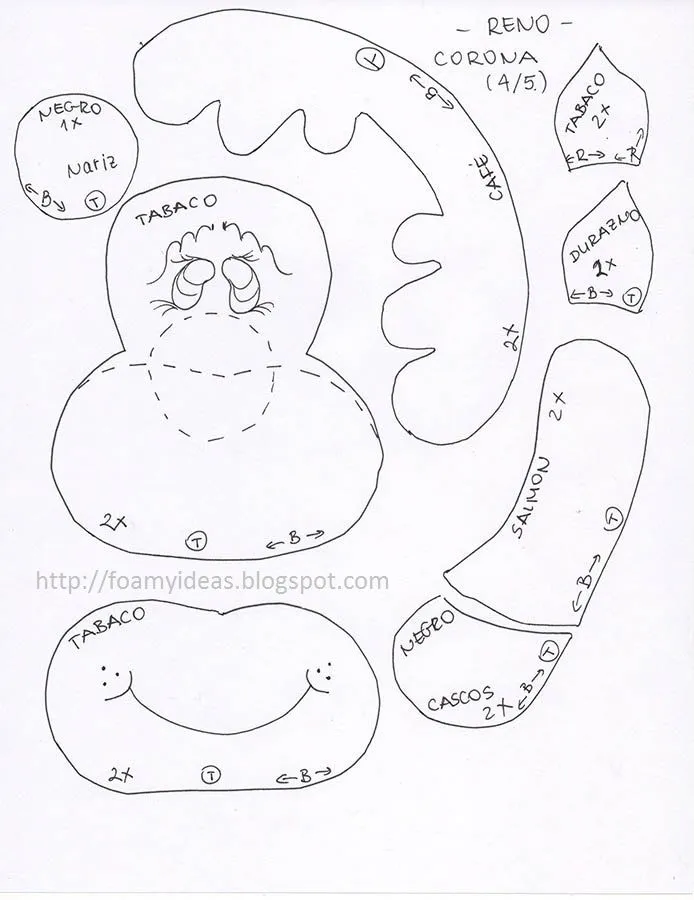 - RENO -
CORONA
(4/5.)
NEGRO
1X
Nariz
←B→
T
T
←B→
CAFÉ
2X
TABACO
2X
←R→
←R→
DURAZNO
2X
←B→
T
TABACO
2X
T
←B→
2X
SALMON
T
←B→
http://foamyideas.blogspot.com
NEGRO
CASCOS
2X
T
←B→
TABACO
2X
T
←B→